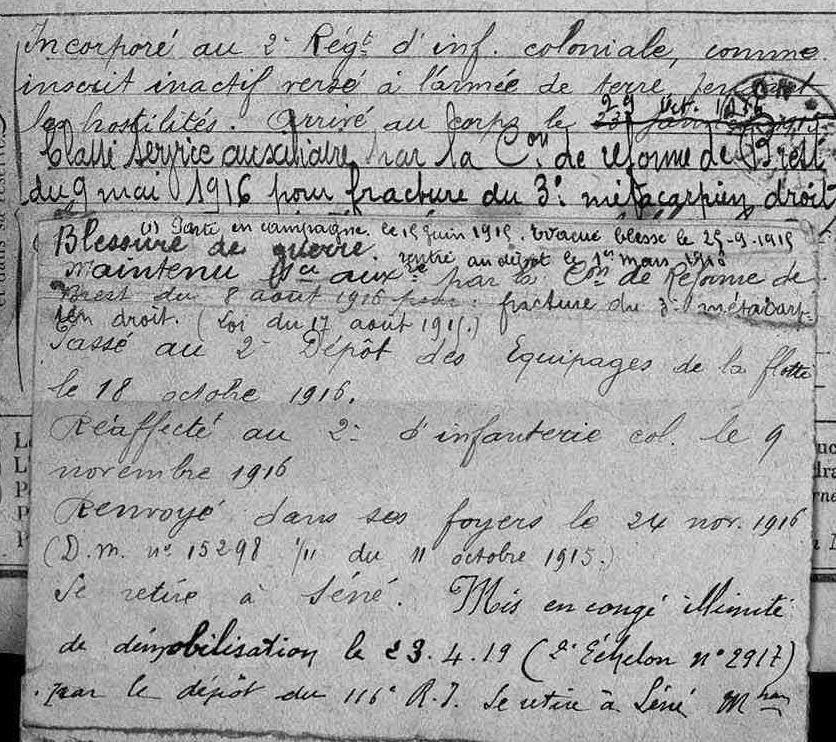 Incorporé au 2e Régt d'inf. coloniale, comme
inscrit inactif versé à l'armée de terre pendant
les hostilités. Arrivé au corps le 29 Oct.
Classé service auxiliaire par la Con de réforme de Brest
du 9 mai 1916 pour fracture du 3e métacarpien droit
(1) Parti en campagne le 15 juin 1915. Evacué blessé le 25-9-1915
Blessure de guerre. rentré au dépôt le 1er mars 1916
Maintenu Sce auxre par la Con de Réforme de
Brest du 8 août 1916 pour : fracture du 3e métacarp-
ien droit. (Loi du 17 août 1915.)
Passé au 2e Dépôt des Equipages de la flotte
le 18 octobre 1916.
Réaffecté au 2e d'infanterie col. le 9
novembre 1916
Renvoyé dans ses foyers le 24 nov. 1916
(D.M. no 15298 1/11 du 11 octobre 1915.)
Se retire à Séné. Mis en congé illimité
de démobilisation le 23.4.19 (2e Échelon n° 2917)
par le dépôt du 116e R.I. Se retire à Séné Mhan